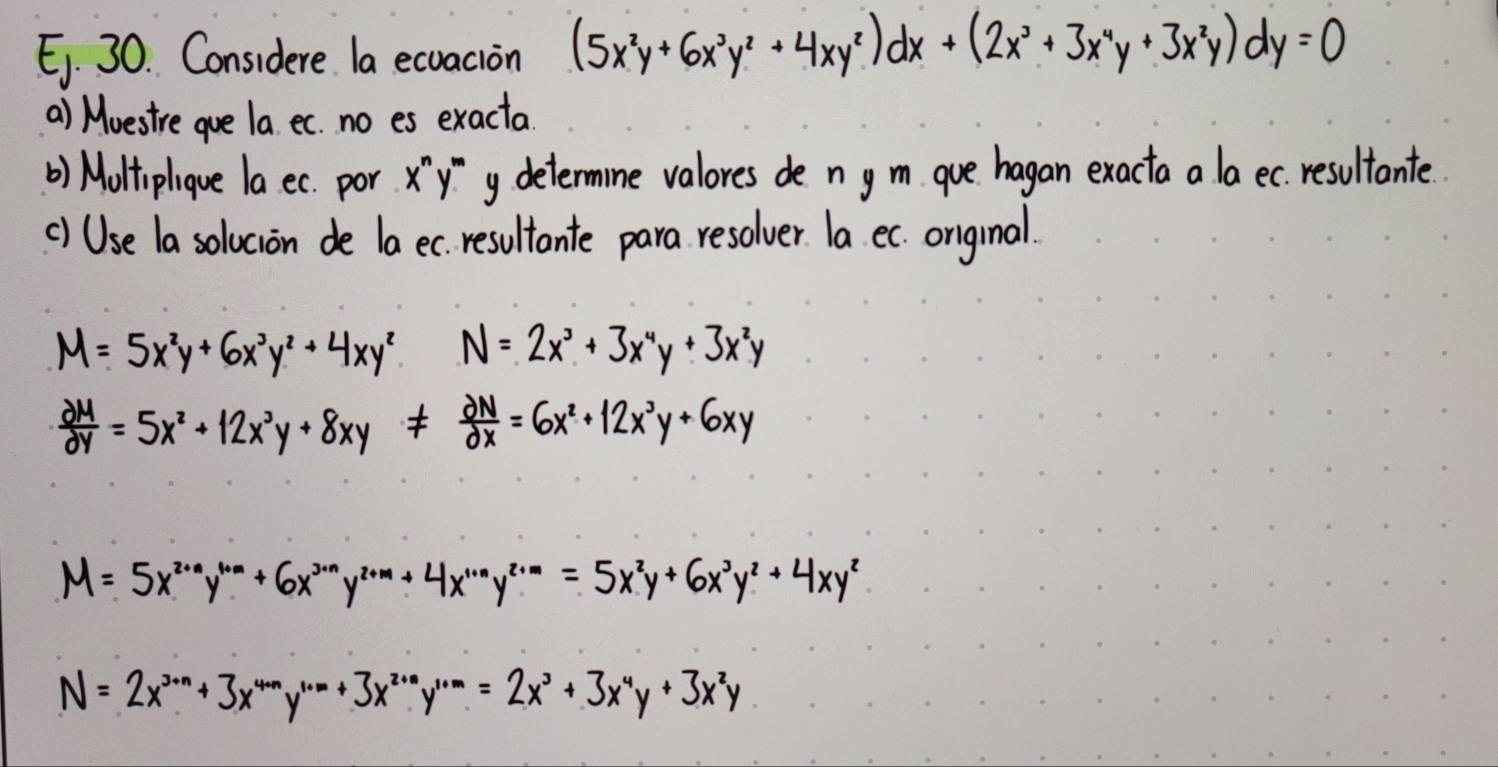 Ej. 30. Considere la ecuación (5x²y + 6x³y² + 4xy²)dx + (2x³ + 3x⁴y + 3x²y)dy = 0
a) Muestre que la ec. no es exacta.
b) Multiplique la ec. por xⁿyᵐ y determine valores de n y m que hagan exacta a la ec. resultante.
c) Use la solución de la ec. resultante para resolver la ec. original.
M = 5x²y + 6x³y² + 4xy² N = 2x³ + 3x⁴y + 3x²y
∂M/∂y = 5x² + 12x³y + 8xy ≠ ∂N/∂x = 6x² + 12x³y + 6xy
M = 5x²⁺ⁿy¹⁺ᵐ + 6x³⁺ⁿy²⁺ᵐ + 4x¹⁺ⁿy²⁺ᵐ = 5x²y + 6x³y² + 4xy²
N = 2x³⁺ⁿ + 3x⁴⁺ⁿy¹⁺ᵐ + 3x²⁺ⁿy¹⁺ᵐ = 2x³ + 3x⁴y + 3x²y